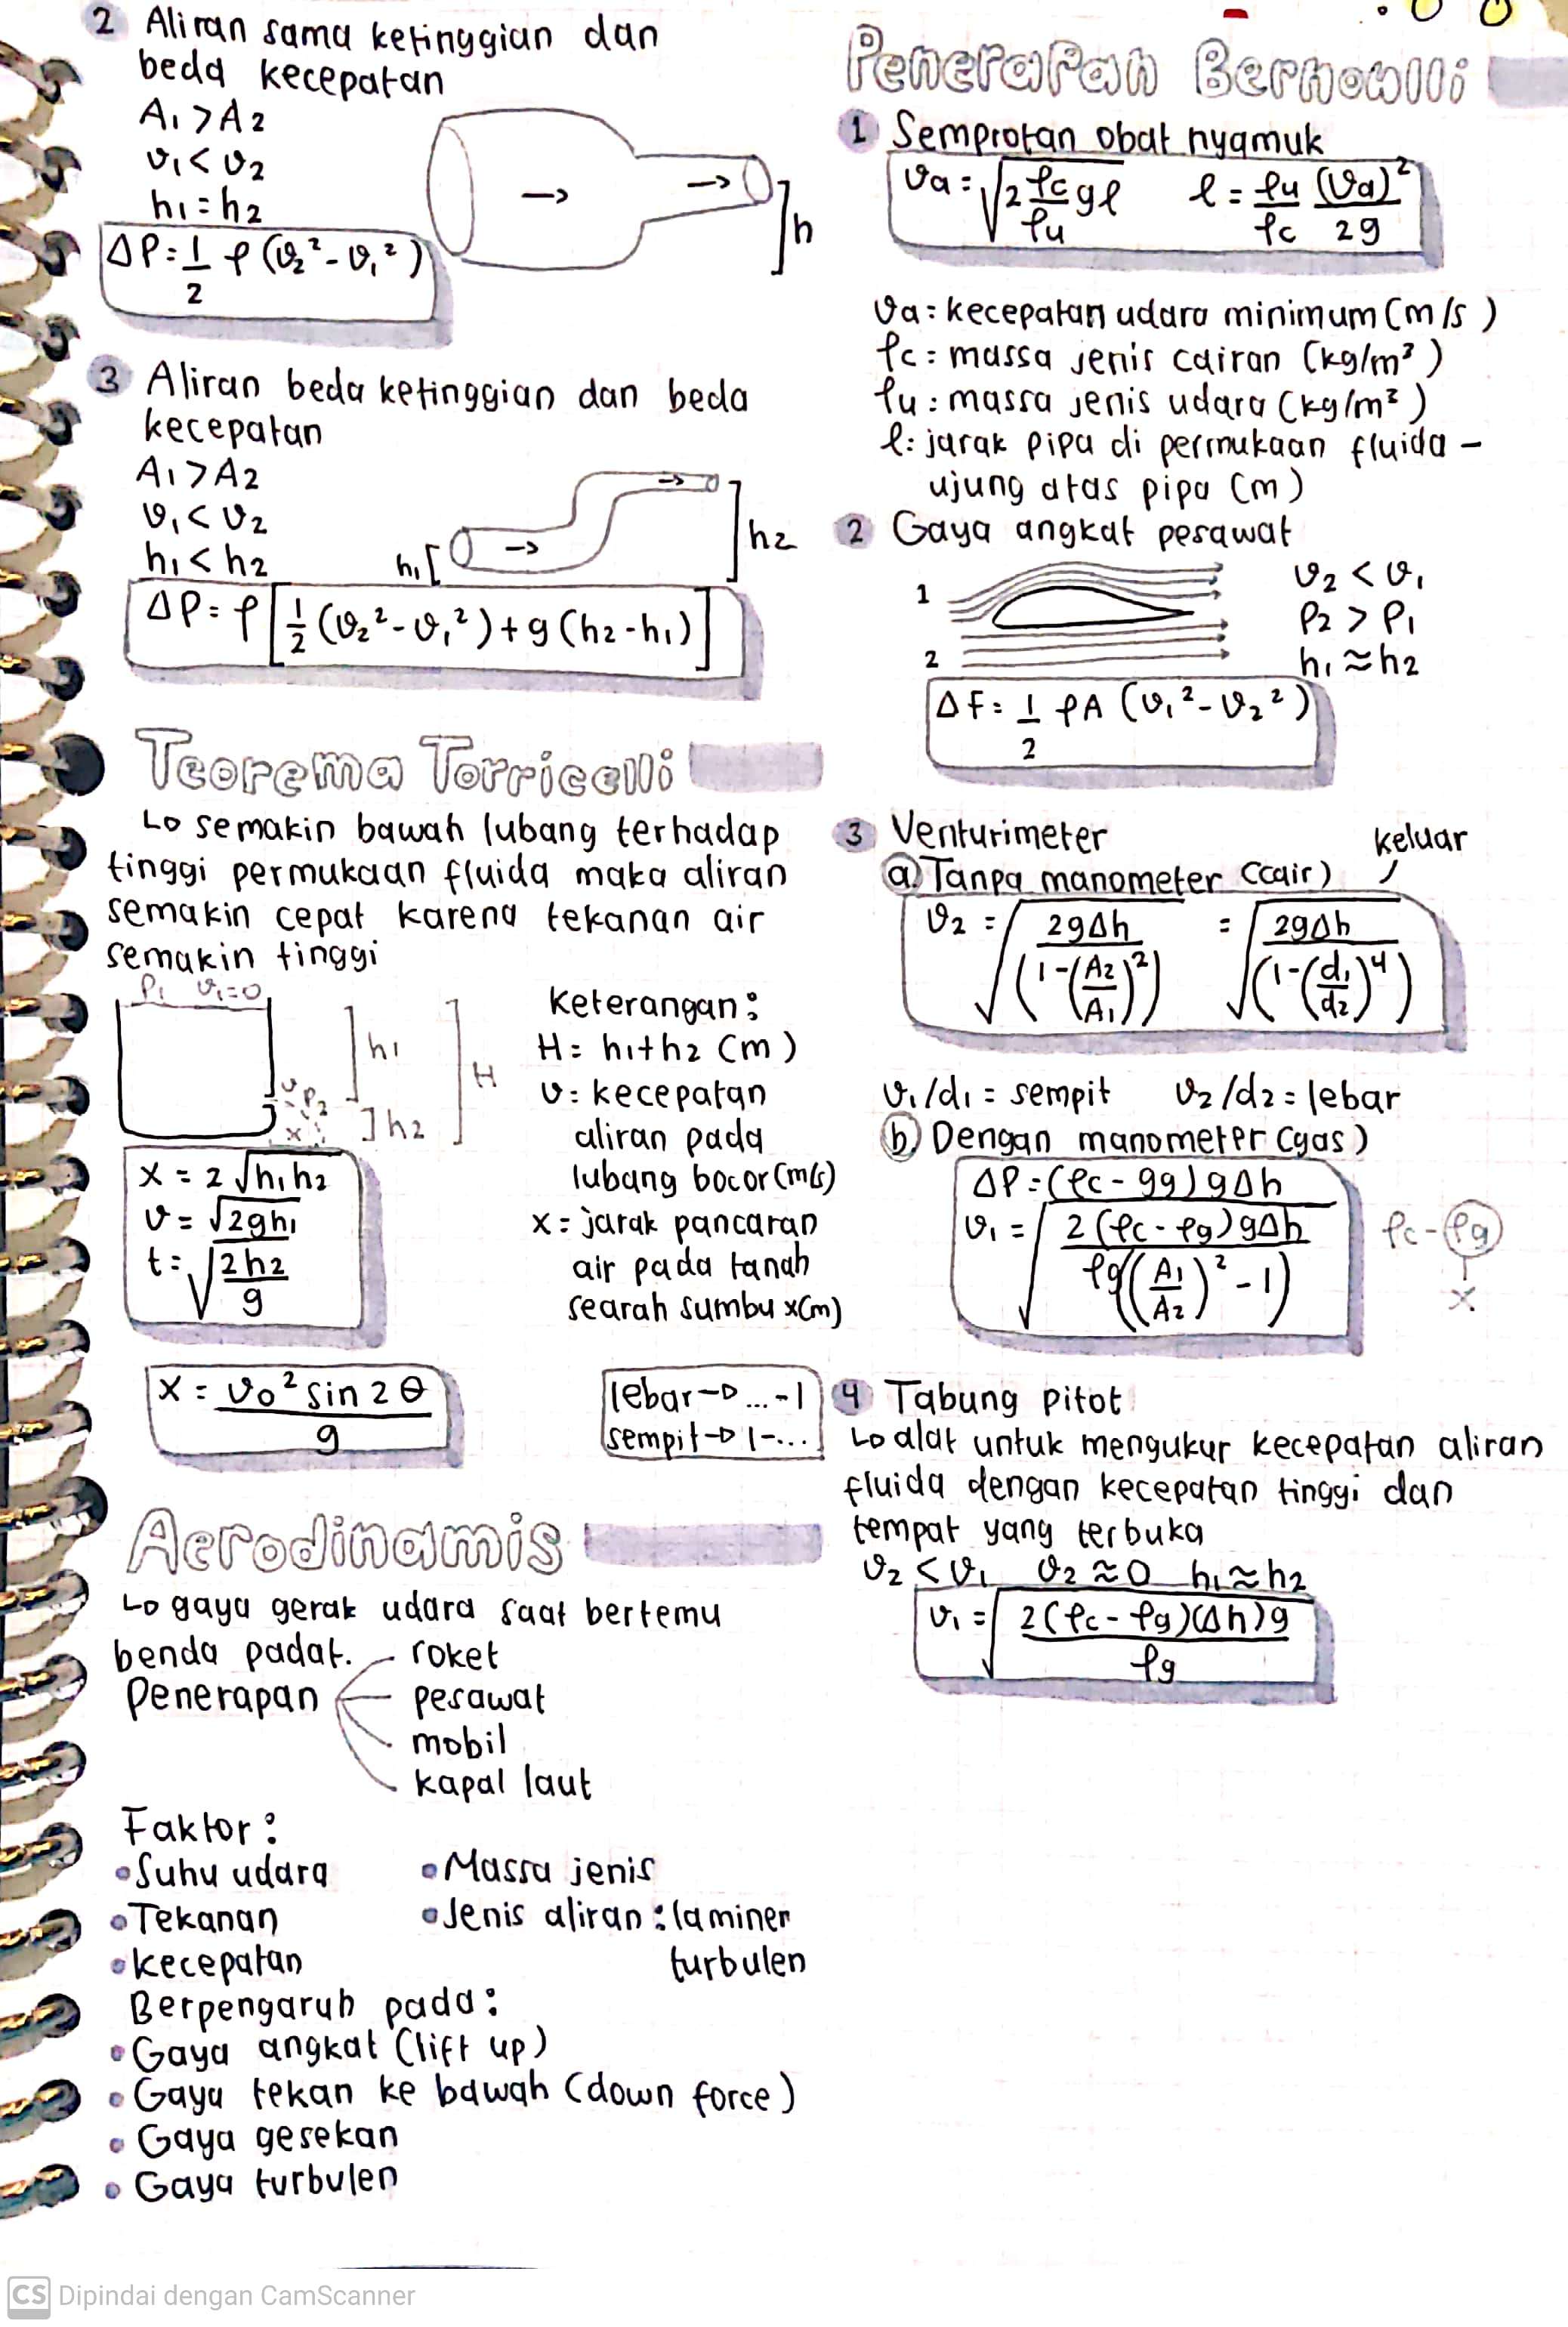 2 Aliran sama ketinggian dan
beda kecepatan
A₁ > A₂
v₁ < v₂
h₁ = h₂
h
ΔP = 1/2 ρ (v₂² - v₁²)
3 Aliran beda ketinggian dan beda
kecepatan
A₁ > A₂
v₁ < v₂
h₁ < h₂
h₁
h₂
ΔP = ρ [1/2 (v₂² - v₁²) + g (h₂ - h₁)]
Teorema Torricelli
↳ semakin bawah lubang terhadap
tinggi permukaan fluida maka aliran
semakin cepat karena tekanan air
semakin tinggi
P₁ v₁=0
h₁
H
v P₂
x
h₂
x = 2 √h₁h₂
v = √2gh₁
t = √2h₂/g
keterangan :
H = h₁+h₂ (m)
v = kecepatan
aliran pada
lubang bocor (m/s)
x = jarak pancaran
air pada tanah
searah sumbu x(m)
x = v₀² sin 2θ / g
lebar → ... -1
sempit → 1-...
Aerodinamis
↳ gaya gerak udara saat bertemu
benda padat.
Penerapan
roket
pesawat
mobil
kapal laut
Faktor :
• Suhu udara • Massa jenis
• Tekanan • Jenis aliran : laminer
• kecepatan turbulen
Berpengaruh pada :
• Gaya angkat (lift up)
• Gaya tekan ke bawah (down force)
• Gaya gesekan
• Gaya turbulen
Penerapan Bernowlli
1 Semprotan obat nyamuk
va = √2 ρc/ρu gl l = ρu/ρc (va)²/2g
va = kecepatan udara minimum (m/s)
ρc = massa jenis cairan (kg/m³)
ρu = massa jenis udara (kg/m³)
l = jarak pipa di permukaan fluida -
ujung atas pipa (m)
2 Gaya angkat pesawat
1
2
v₂ < v₁
P₂ > P₁
h₁ ≈ h₂
ΔF = 1/2 ρA (v₁² - v₂²)
3 Venturimeter
keluar
a) Tanpa manometer (cair)
v₂ = √2gΔh/(1-(A₂/A₁)²) = √2gΔh/(1-(d₁/d₂)⁴)
v₁/d₁ = sempit v₂/d₂ = lebar
b) Dengan manometer (gas)
ΔP = (ρc - gg) gΔh
v₁ = √2(ρc - ρg) gΔh / ρg((A₁/A₂)² - 1)
ρc - ρg
x
4 Tabung pitot
↳ alat untuk mengukur kecepatan aliran
fluida dengan kecepatan tinggi dan
tempat yang terbuka
v₂ < v₁ v₂ ≈ 0 h₁ ≈ h₂
v₁ = √2(ρc - ρg)(Δh)g / ρg
CS Dipindai dengan CamScanner